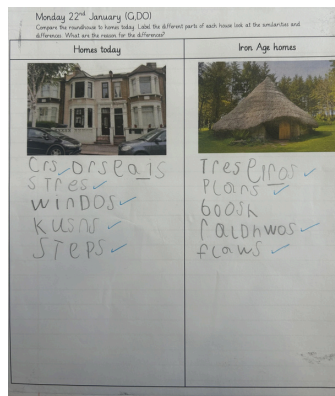 Monday 22nd January (G,DO)
Compare the roundhouse to homes today. Label the different parts of each house look at the similarities and
differences. What are the reason for the differences?
Homes today
Iron Age homes
Crs Drs
sTres
winDOS
kusns
STePS
Tres
PLans
boosh
flaws